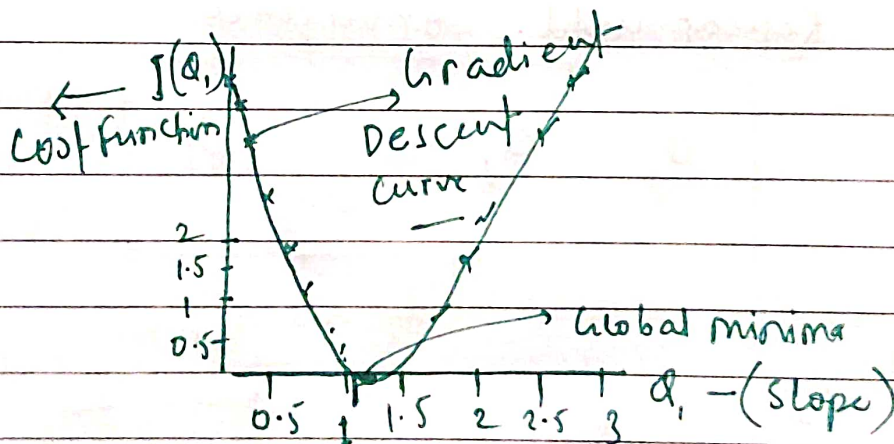 J(Q₁)
Cost function
Gradient
Descent
curve
2
1.5
1
0.5
Global minima
0.5 1 1.5 2 2.5 3 Q₁ - (Slope)